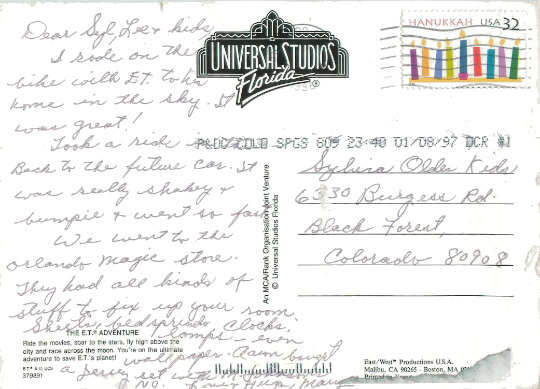 Dear Syl, Lee & kids,
I rode on the
bike with E.T. to his
home in the sky. It
was great!
Took a ride
Back to the future car. It
was really shakey &
bumpie & went so fast
We went to the
orlando magic store.
They had all kinds of
stuff to fix up your room
Sheets, bedspreads, clocks,
lamps - even
wallpaper. Aaron bought
a jersey set with
No.
THE E.T.® ADVENTURE
Ride the movies, soar to the stars, fly high above the
city and race across the moon. You're on the ultimate
adventure to save E.T.'s planet!
379891
UNIVERSAL STUDIOS
Florida
®
An MCA/Rank Organisation Joint Venture
© Universal Studios Florida
HANUKKAH USA 32
P&DC/COLO SPGS 809 23:40 01/08/97 DCR #1
Sylvina Older Kids
6330 Burgess Rd.
Black Forest,
Colorado 80908
East/West™ Productions U.S.A.
Malibu, CA 90265 - Boston, MA
Printed in